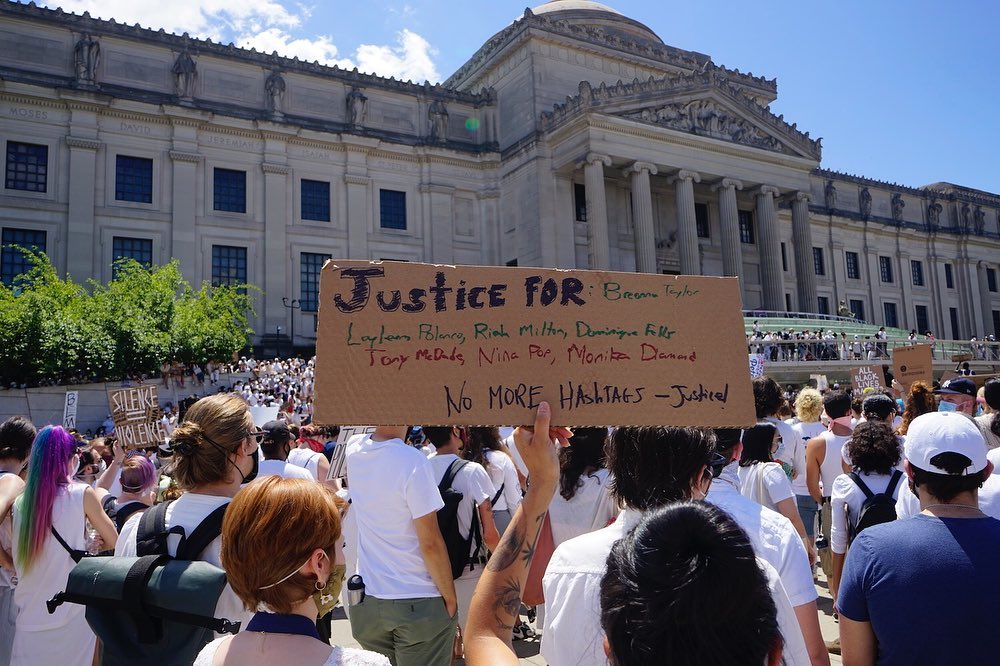 MOSES
DAVID
JEREMIAH
ISAIAH
Justice FOR: Breonna Taylor
Layleen Polanco, Riah Milton, Dominique Fells
Tony McDade, Nina Pop, Monika Diamond
No MORE HASHTAGS - Justice!
SILENCE
VIOLENCE
ALL
BLACK
LIVES